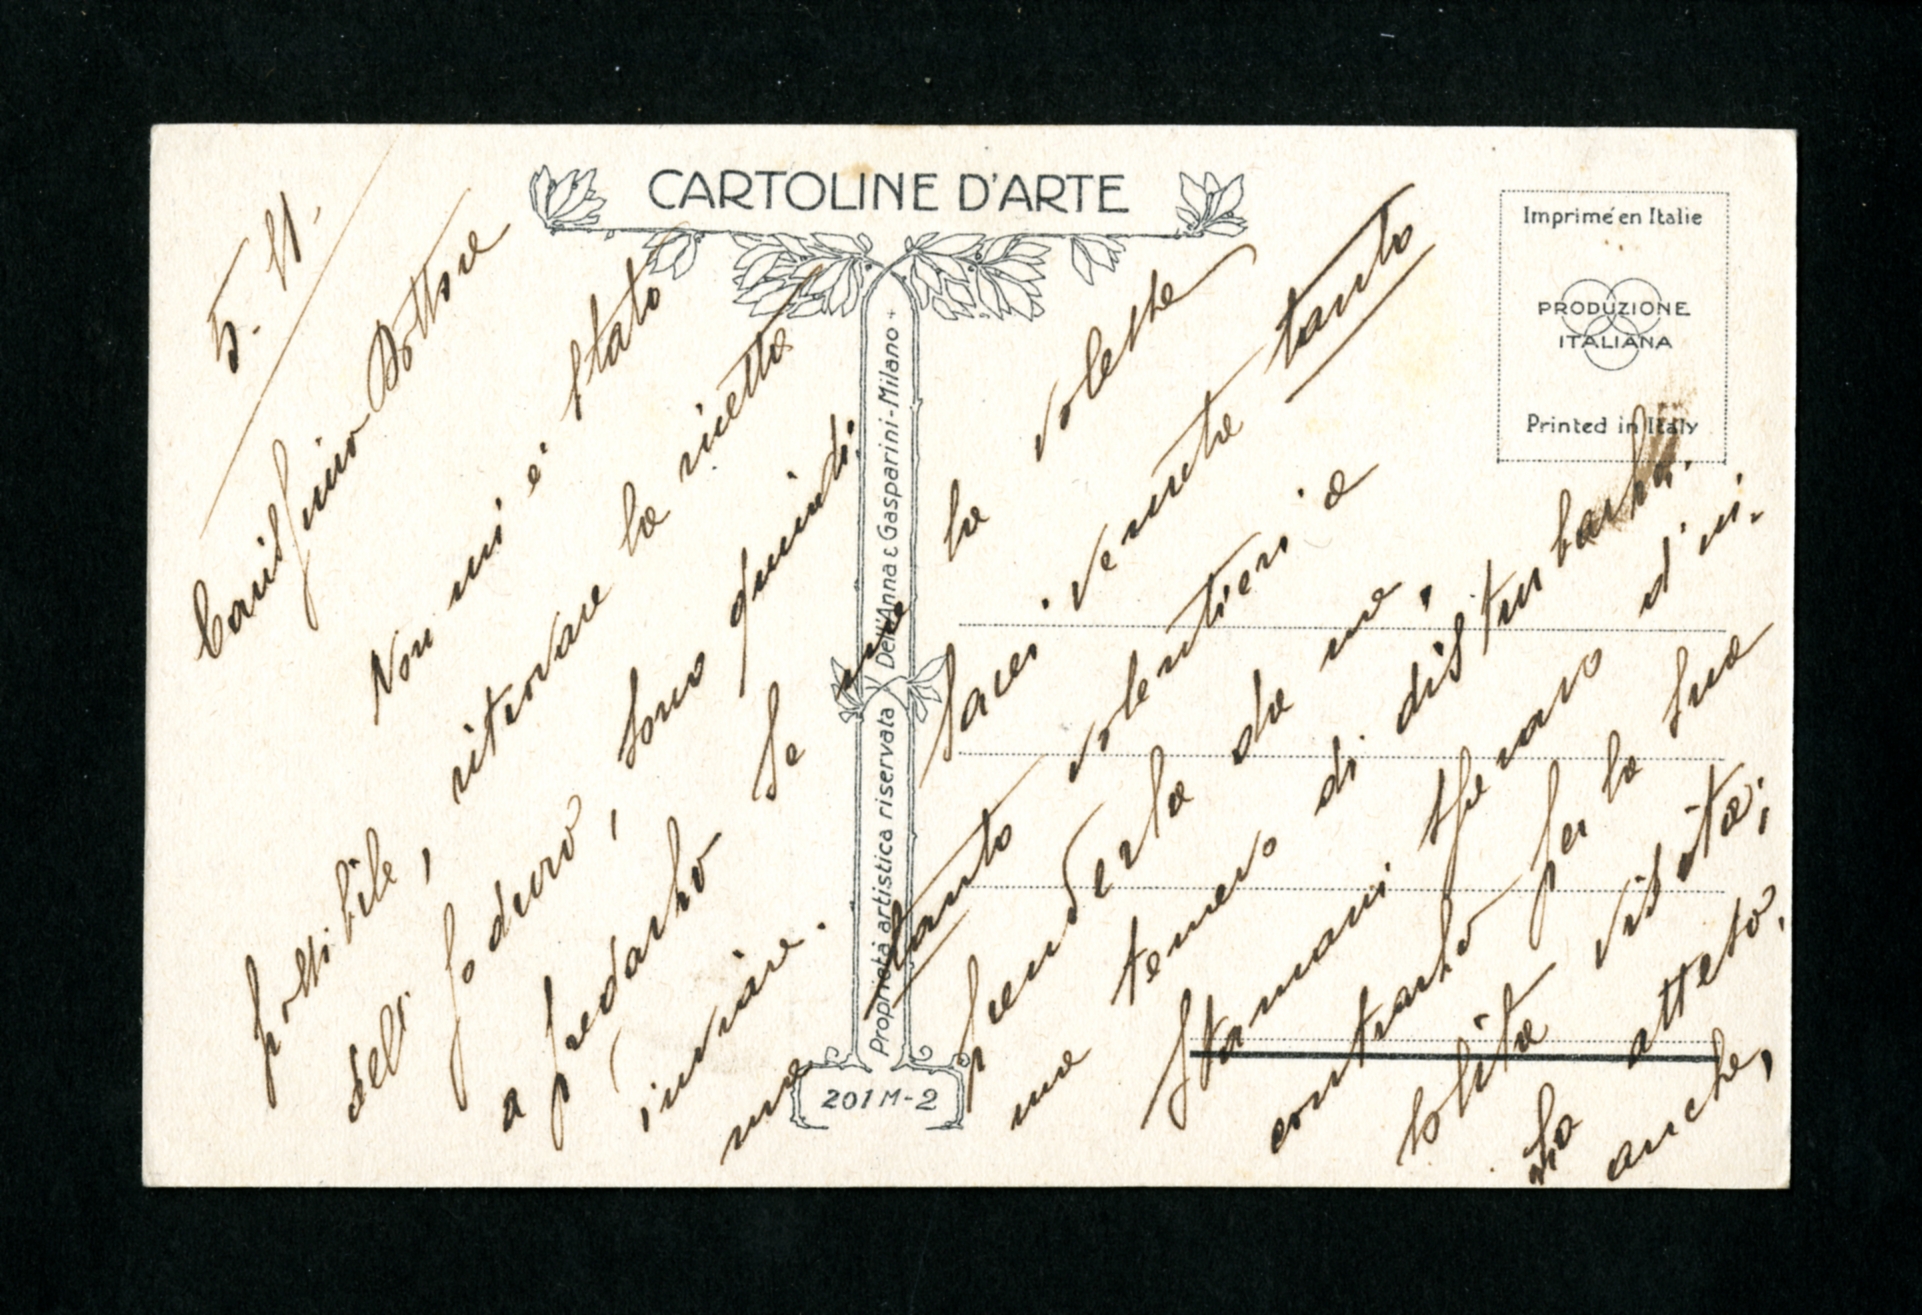 CARTOLINE D'ARTE
5. 11.
Carissimo Dottore
Non mi è stato
possibile, ritrovare la ricetta
dell' Joduro, sono quindi
a pregarlo se me la volesse
inviare. Sarei venuta tanto
ma tanto volentieri a
prenderla da me,
ma temevo di disturbarla.
Stamani speravo d'in-
contrarlo per la sua
solita visita;
atteso.
anche,
Proprietà artistica riservata Dell'Anna E Gasparini-Milano +
201 M-2
Imprimé en Italie
PRODUZIONE
ITALIANA
Printed in Italy